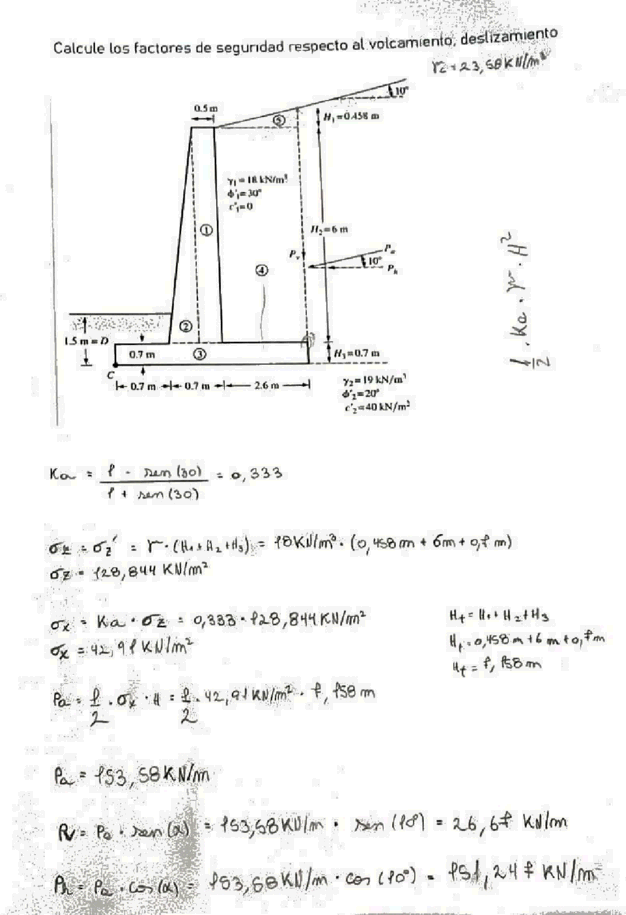 Calcule los factores de seguridad respecto al volcamiento, deslizamiento
γc = 23,58 KN/m³
10°
0.5 m
⑤
H₁=0.458 m
γ₁ = 18 kN/m³
ϕ'₁= 30°
c'₁=0
①
H₂=6 m
Pᵥ
Pₐ
10°
Pₕ
④
1/2 . Ka . γ . H²
1.5 m = D
②
0.7 m
③
H₃=0.7 m
C
0.7 m
0.7 m
2.6 m
γ₂ = 19 kN/m³
ϕ'₂=20°
c'₂=40 kN/m²
Ka = 1 - sen (30) / 1 + sen (30) = 0,333
σz = σz' = γ . (H₁+H₂+H₃) = 18KN/m³ . (0,458m + 6m + 0,7m)
σz = 128,844 KN/m²
σx = Ka . σz = 0,333 . 128,844KN/m²
σx = 42,91 KN/m²
Ht = H₁ + H₂ + H₃
Ht = 0,458 m + 6 m + 0,7m
Ht = 7,158 m
Pa = 1/2 . σx . H = 1/2 . 42,91 KN/m² . 7,158 m
Pa = 153,58 KN/m
Pv = Pa . sen (α) = 153,58 KN/m . sen (10°) = 26,67 KN/m
Ph = Pa . cos (α) = 153,58 KN/m . cos (10°) = 151,247 KN/m